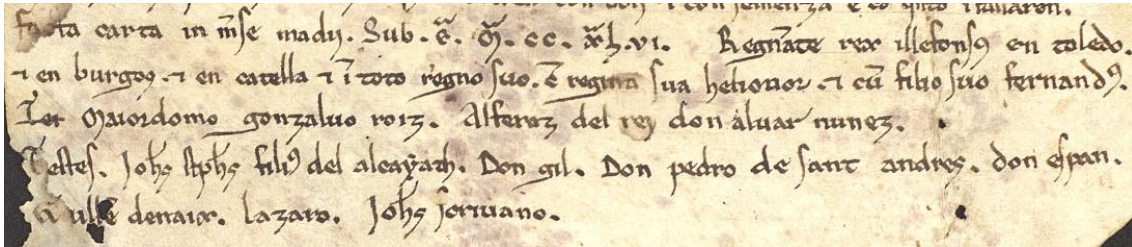 facta carta in mse madii. Sub. E. M. CC. xh.vi. Regnate rex illefonsꝰ en toledo.
⁊ en burgos. ⁊ en catella ⁊ ī toto regno suo. c̄ regina sua helionor. ⁊ cū filio suo fernandꝰ.
Maiordomo gonzaluo roiz. Alferez del rey don aluar nunez.
Testes. Johs stphs filiꝰ del alcayath. Don gil. Don pedro de sant andres. don espan.
denaiar. lazaro. Johs